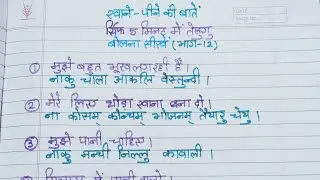 खाने-पीने की बातें
सिर्फ 5 मिनट में तेलुगु
बोलना सीखें (भाग-12)
① मुझे बहुत भूख लग रही है।
नाकु चाला आकलि वेस्तुन्दी।
② मेरे लिए थोड़ा खाना बना दो।
ना कोसम् कोन्चम् भोजनम् तैयारु चेयु।
③ मुझे पानी चाहिए।
नाकु मन्ची निल्लु कावाली।